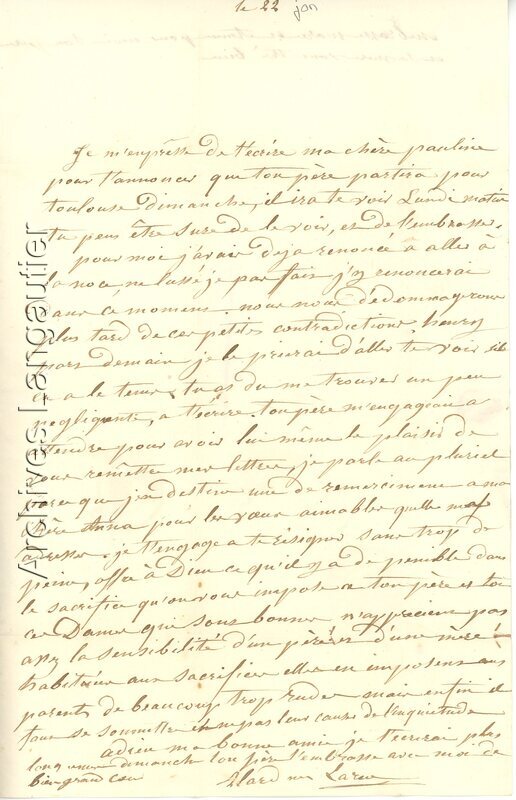 le 22 jan
Je m'enprêsse de t'écrire ma chère pauline
pour t'annoncer que ton père partira pour
toulouse dimanche, il ira te voir Lundi matin
tu peus être sure de le voir, et de l'embrasser.
pour moi j'avais deja renoncé à aller a
la noce, ne l'ussé je pas fais j'y renoncerai
dans ce moment. nous nous dédommagerons
plus tard de ces petites contradictions, henry
pars demain je le prierai d'aller te voir s'il
en a le tems. tu as du me trouver un peu
negligente, a t'écrire, ton père m'engageait a
attendre pour avoir lui même le plaisir de
vous remêttre mes lettres, je parle au pluriel
parce que j'en destine une de remerciment a ma
chère Anna pour les vœux aimables qu'elle m'a
adressés. je t'engage a te résigner sans trop de
peine, offre à Dieu ce qu'il y a de penible dans
le sacrifice qu'on vous impose a ton père et toi
ces Dames qui sont bonnes n'apprecient pas
assez la sensibilité d'un père et d'une mère !
habituées aux sacrifices elles en imposent aux
parents de beaucoup trop rudes mais enfin il
faut se soumettre et ne pas leur causer de l'inquiétude
adieu ma bonne amie je t'écrirai plus
longuement dimanche ton père t'embrasse avec moi de
bien grand cœur
Archives Langautier